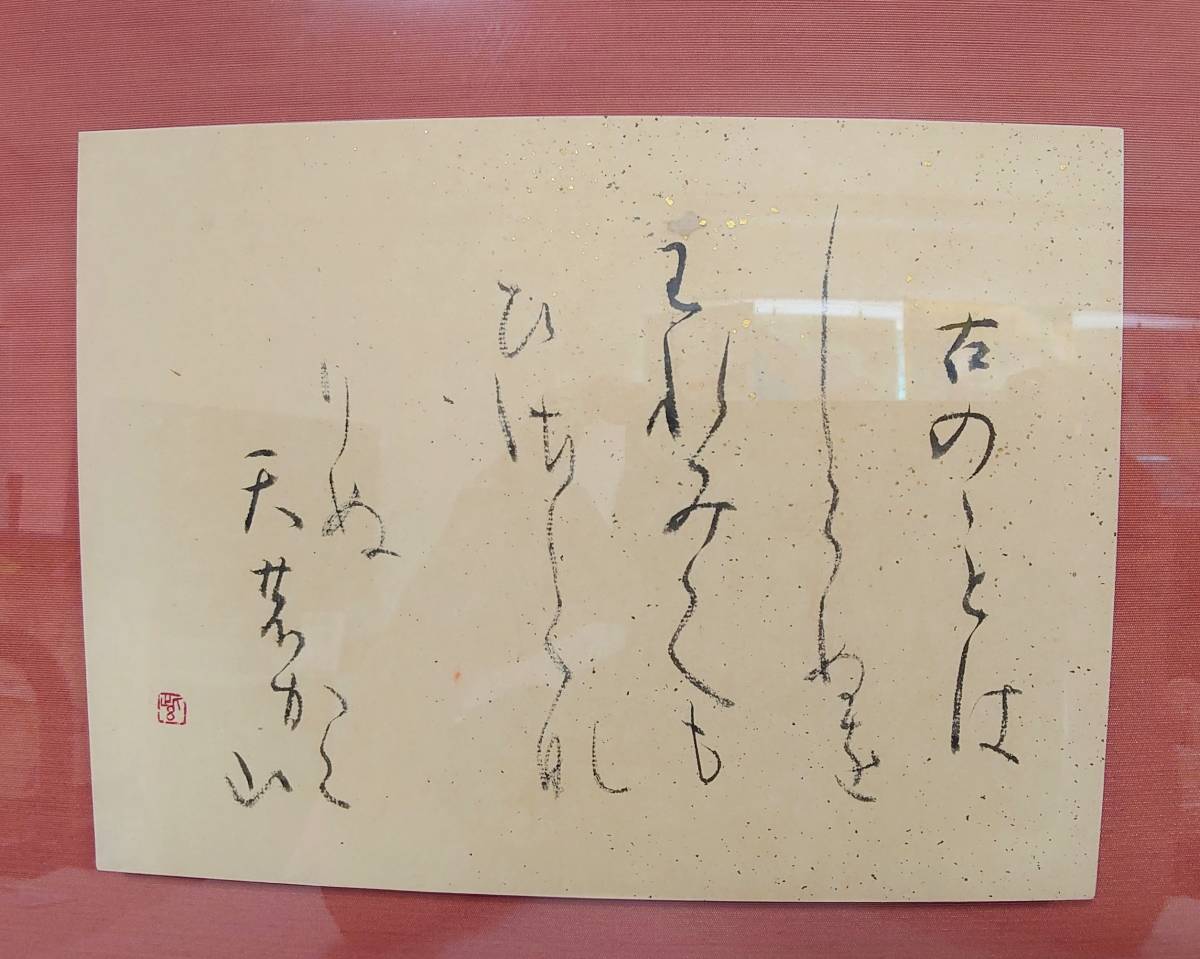 古のことは
しらぬを
われみても
ひさしくな
りぬ
天のかく山